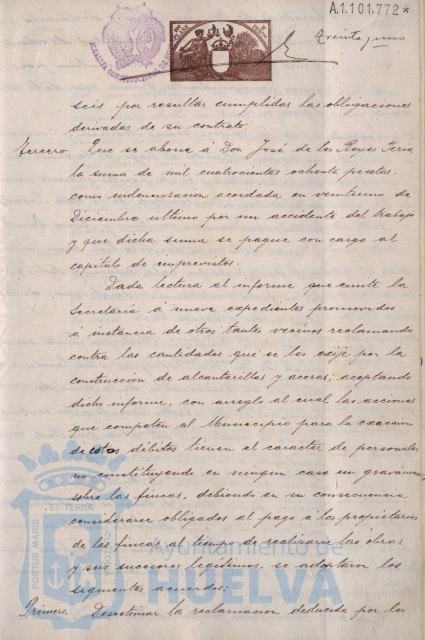 A.1.101.772*
Treinta y uno
seis por resultar cumplidas las obligaciones
derivadas de su contrato.
Tercero. Que se abone á Don José de los Reyes Feria
la suma de mil cuatrocientas ochenta pesetas.
como indemnizacion acordada en veintiuno de
Diciembre último por un accidente del trabajo
y que dicha suma se pague con cargo al
capítulo de imprevistos.
Dada lectura al informe que emite la
Secretaría á nueve expedientes promovidos
á instancia de otros tantos vecinos reclamando
contra las cantidades que se les exije por la
construccion de alcantarillas y aceras; aceptando
dicho informe, con arreglo al cual las acciones
que competen al Municipio para la exaccion
de estos débitos tienen el caracter de personales
no constituyendo en ningun caso un gravamen
sobre las fincas, debiendo en su consecuencia
considerarse obligados al pago á los propietarios
de las fincas al tiempo de realizarse las obras
y sus sucesores legítimos, se adoptaron los
siguientes acuerdos:
Primero. Desestimar la reclamacion deducida por los
PORTUS MARIS
ET TERRA
Ayuntamiento de
HUELVA